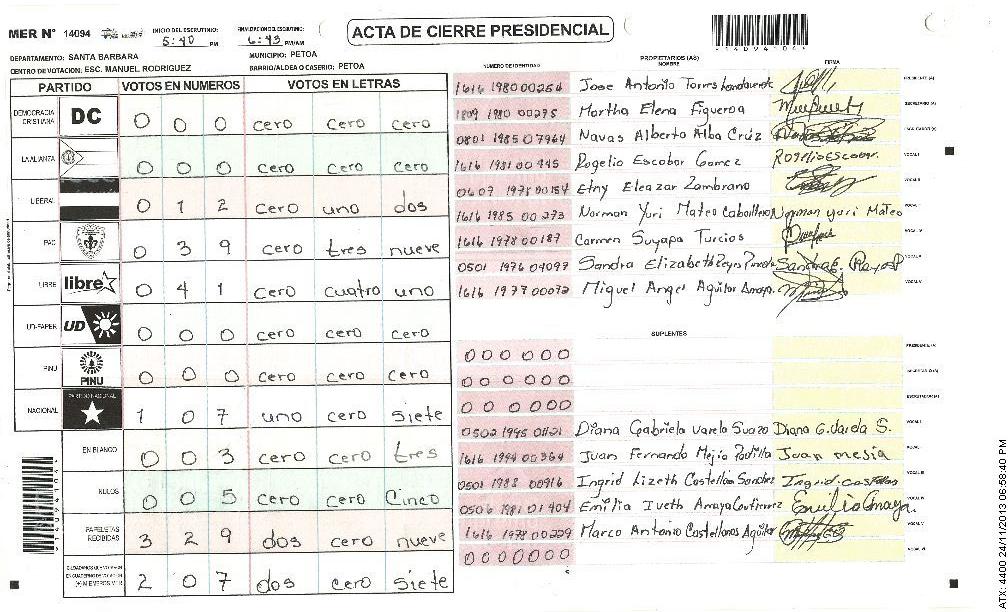 MER N° 14094
INICIO DEL ESCRUTINIO: 5:40 PM
FINALIZACION DEL ESCRUTINIO: 6:43 PM/AM
ACTA DE CIERRE PRESIDENCIAL
DEPARTAMENTO: SANTA BARBARA MUNICIPIO: PETOA
CENTRO DE VOTACION: ESC. MANUEL RODRIGUEZ BARRIO/ALDEA O CASERIO: PETOA
PARTIDO VOTOS EN NUMEROS VOTOS EN LETRAS
DEMOCRACIA CRISTIANA DC 0 0 0 cero cero cero
LA ALIANZA 0 0 0 cero cero cero
LIBERAL 0 1 2 cero uno dos
PAC 0 3 9 cero tres nueve
LIBRE libre 0 4 1 cero cuatro uno
UD-FAPER UD 0 0 0 cero cero cero
PINU PINU 0 0 0 cero cero cero
NACIONAL PARTIDO NACIONAL 1 0 7 uno cero siete
EN BLANCO 0 0 3 cero cero tres
NULOS 0 0 5 cero cero Cinco
PAPELETAS RECIBIDAS 3 2 9 dos cero nueve
2 0 7 dos cero siete
NUMERO DE IDENTIDAD PROPIETARIOS (AS) NOMBRE FIRMA
1616 1980 00254 Jose Antonio Torres PRESIDENTE (A)
1809 1980 00275 Martha Elena Figueroa SECRETARIO (A)
0801 1985 07964 Navas Alberto Alba Cruz
1616 1981 00445 Rogelio Escobar Gomez Rogelio Escobar. VOCAL I
0607 1978 00154 Etny Eleazar Zambrano VOCAL II
1616 1985 00273 Norman Yuri Mateo Norman Yuri Mateo
1616 1978 00187 Carmen Suyapa Turcios
0501 1976 04097 Sandra Elizabeth Reyes Sandra E. Reyes P
1616 1977 00072 Miguel Angel Aguilar Amaya.
SUPLENTES
000 000 PRESIDENTE (A)
000 000 SECRETARIO (A)
00 0000
0502 1995 Diana Gabriela Varela Suazo Diana G. Varela S. VOCAL I
1616 1994 00364 Juan Fernando Mejia Juan mesia
0501 1988 00916 Ingrid Lizeth Castellon Sanchez Ingrid. VOCAL III
0506 1981 01404 Emilia Iveth Amaya Gutierrez Emilia Amaya. VOCAL IV
1616 1978 00209 Marco Antonio Castellanos Aguilar VOCAL V
0000000 VOCAL VI
ATX: 4400 24/11/2013 06:58:40 PM